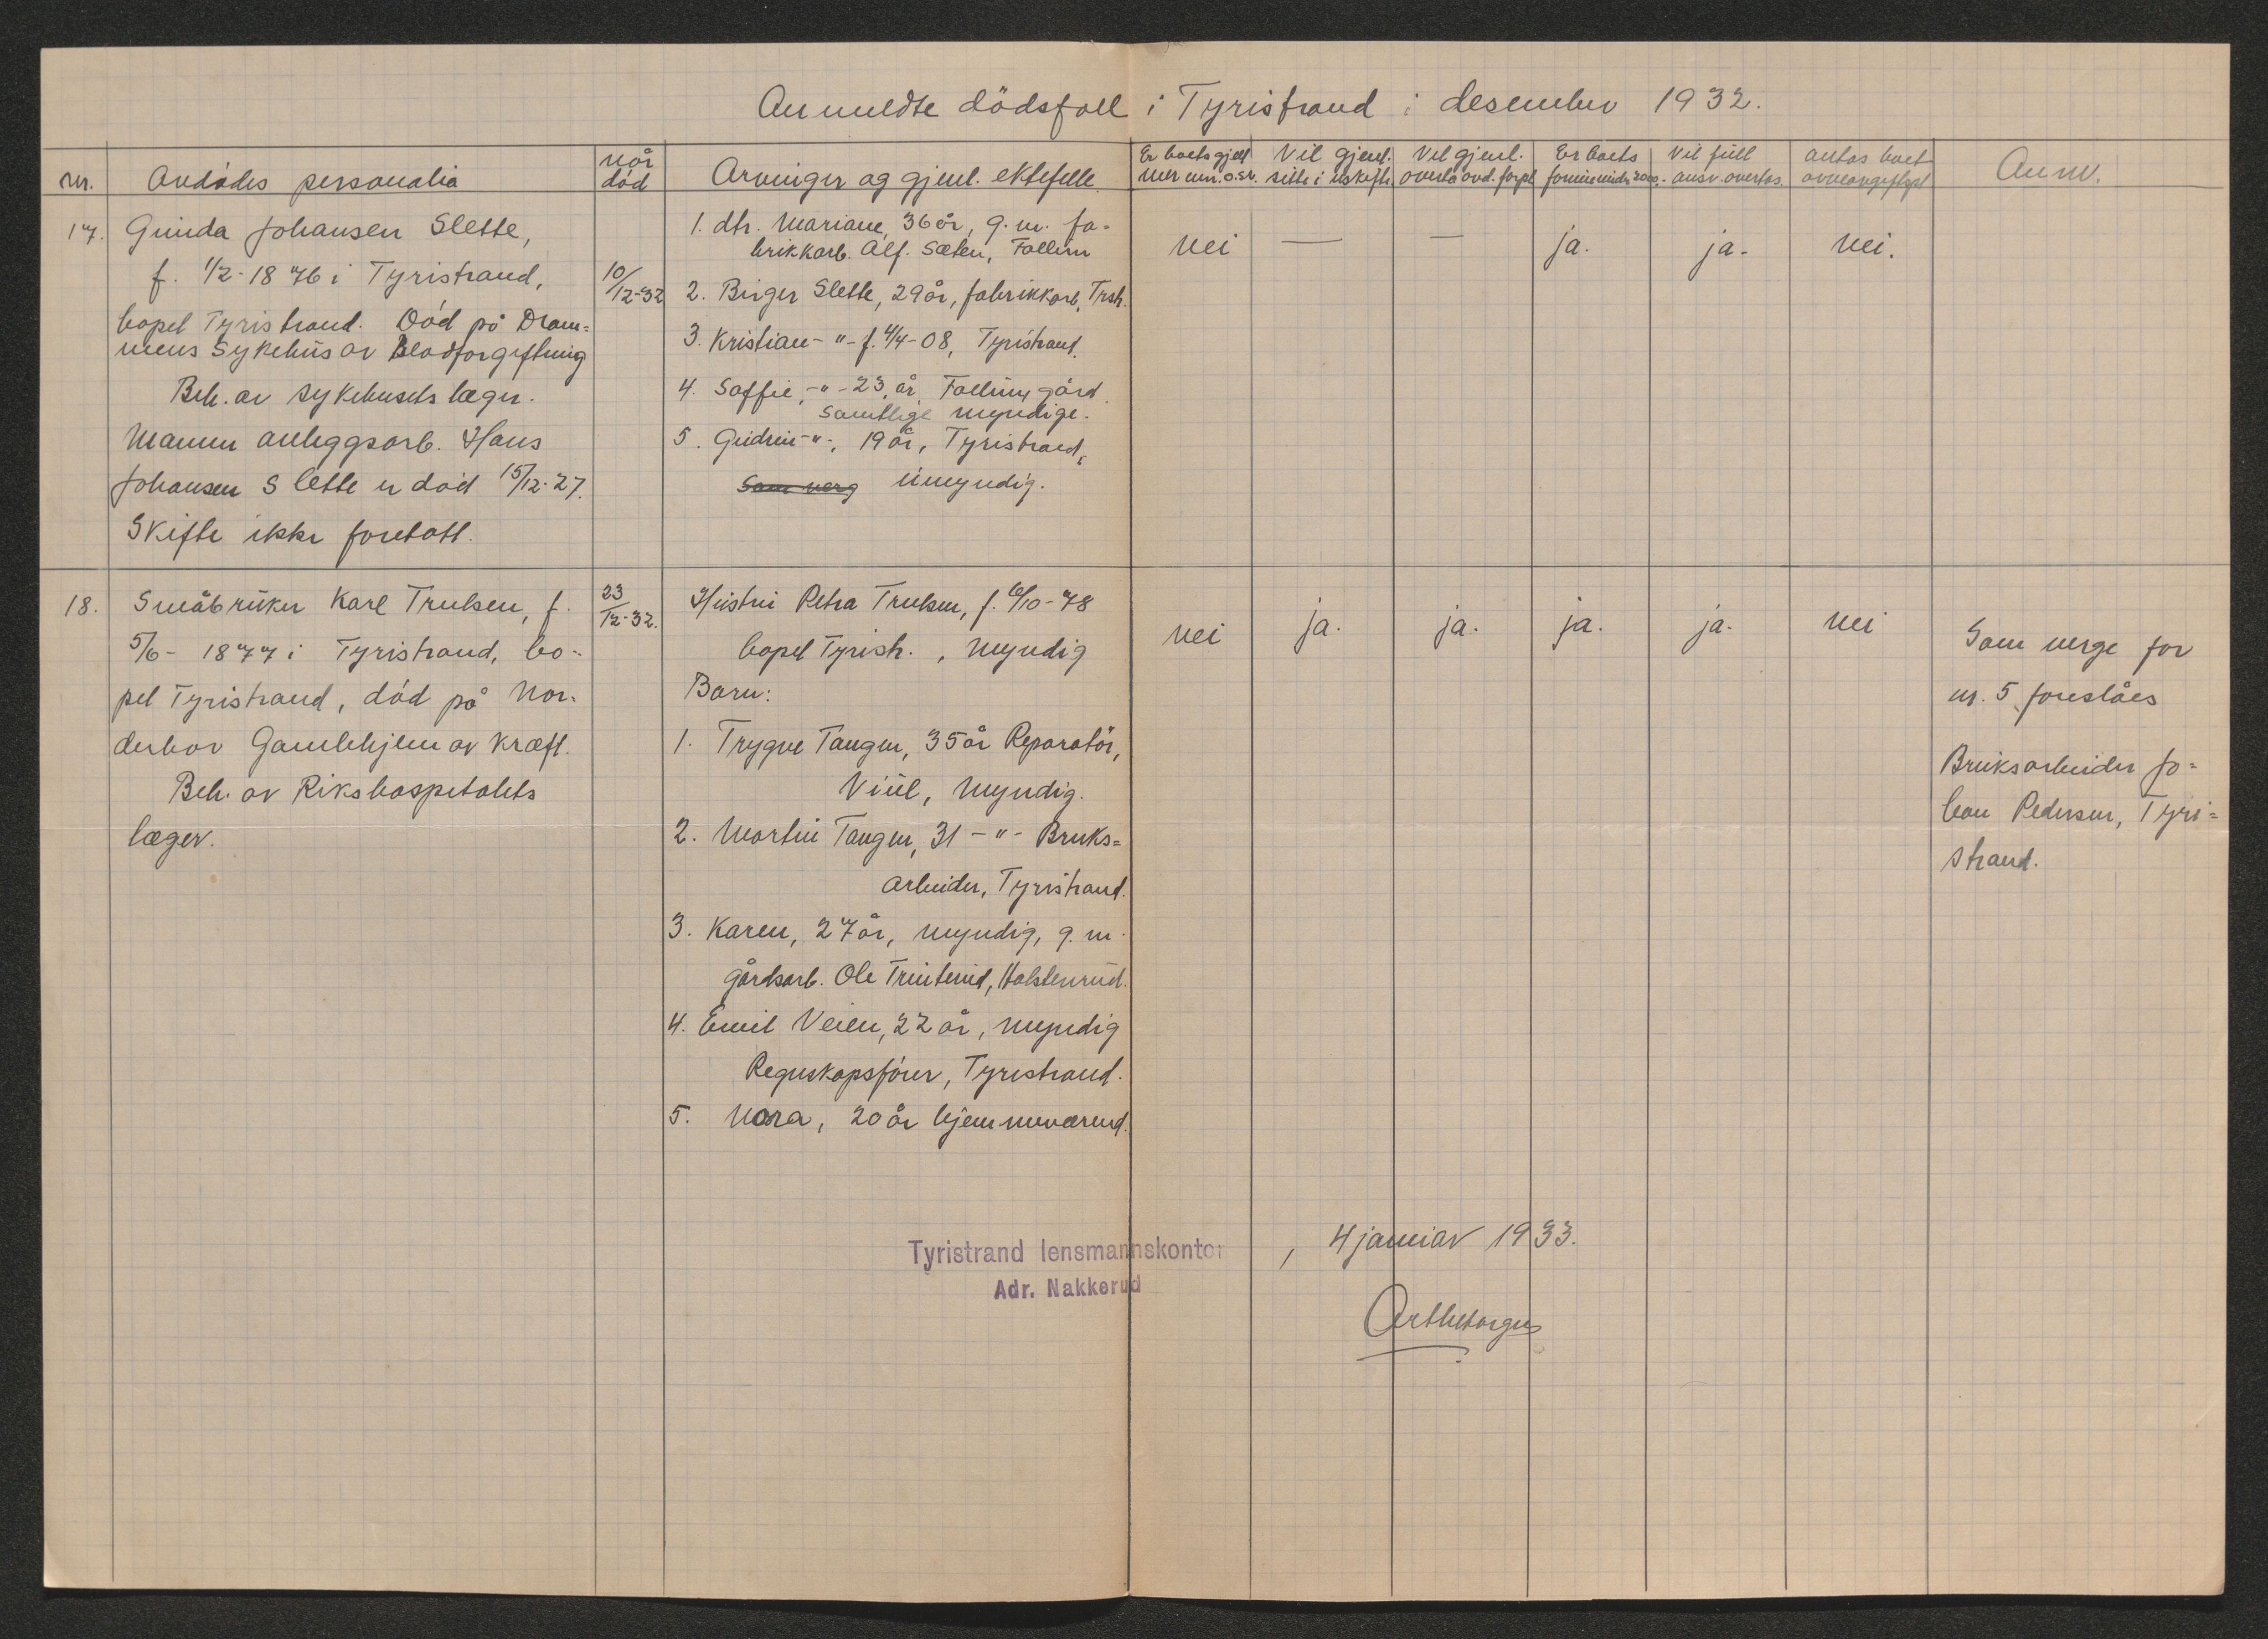 Anmeldte dödsfall i Tyristrand i desember 1932.
Nr.
Avdödes personalia
Når
död
Arvinger og gjenl. ektefelle
Er boets gjeld
mer enn o.s.v.
Vil gjenl.
sitte i uskifte
Vil gjenl.
overta avd. forpl.
Er boets
formue under 2000.-
Vil full
ansv. overtas.
Antas boet
arveavgiftspl.
Anm.
17.
Gunda Johansen Slette,
f. 1/2-1876 i Tyristrand,
bopel Tyristrand. Död på Dram=
mens Sykehus av Blodforgiftning
Beh. av sykehusets læger.
Mannen anleggsarb. Hans
Johansen Slette er död 15/12-27.
Skifte ikke foretatt.
10/12-32
1. dtr. Mariane, 36 år, g.m. fa-
brikkarb. Alf. Sæten, Follum
2. Birger Slette, 29 år, fabrikkarb, Trst.
3. Kristian -"- f. 4/4-08, Tyristrand.
4. Soffie, -"- 23 år, Follum gård.
Samtlige myndige.
5. Gudrun -"-, 19 år, Tyristrand,
Som verg umyndig.
nei
—
—
ja.
ja-
nei.
18.
Småbruker Karl Trulsen, f.
5/6- 1877 i Tyristrand, bo-
pel Tyristrand, död på Nor-
derhov Gamlehjem av kræft.
Beh. av Rikshospitalets
læger.
23/12-32.
Hustru Petra Trulsen, f. 6/10-78
bopel Tyrist. , myndig
Barn:
1. Trygve Tangen, 35 år Reparatör,
Viul, myndig.
2. Martin Tangen, 31 -"- Bruks=
arbeider, Tyristrand.
3. Karen, 27 år, myndig, g.m.
gårdsarb. Ole Trinterud, Holstenrud.
4. Emil Veien, 22 år, myndig
Regnskapsförer, Tyristrand.
5. Nora, 20 år hjemmeværend.
nei
ja.
ja-
ja.
ja-
nei
Som verge for
nr. 5 foreslåes
Bruksarbeider Jo=
han Pedersen, Tyri=
strand.
Tyristrand lensmannskontor
Adr. Nakkerud
, 4 januar 1933.